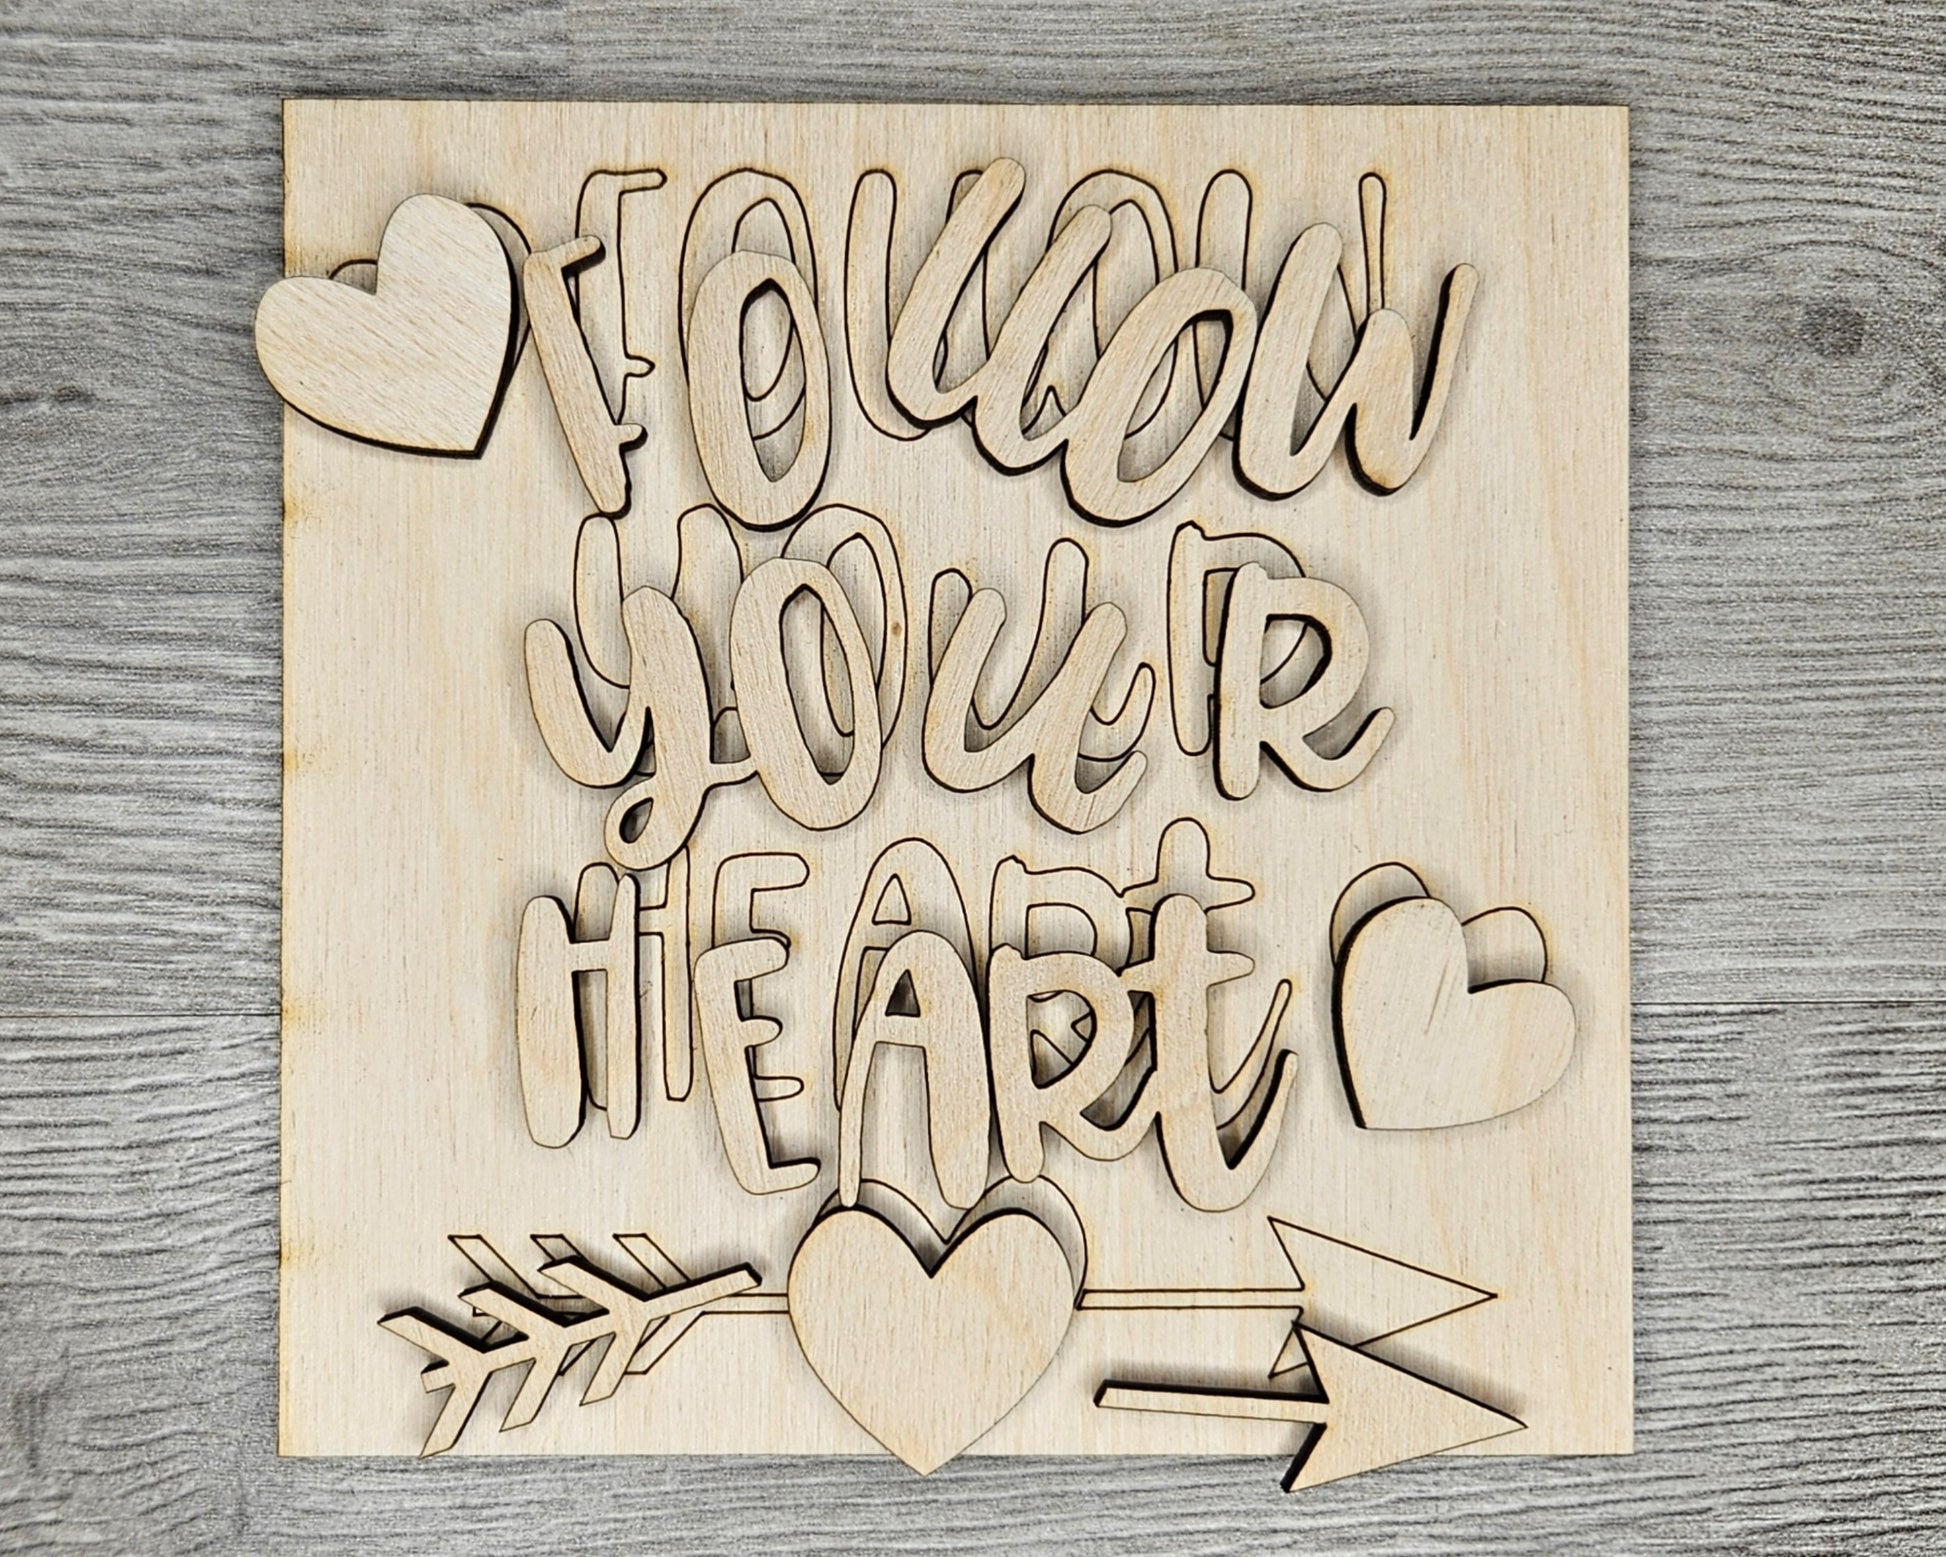 FOLLOW
yOUR
HEARt